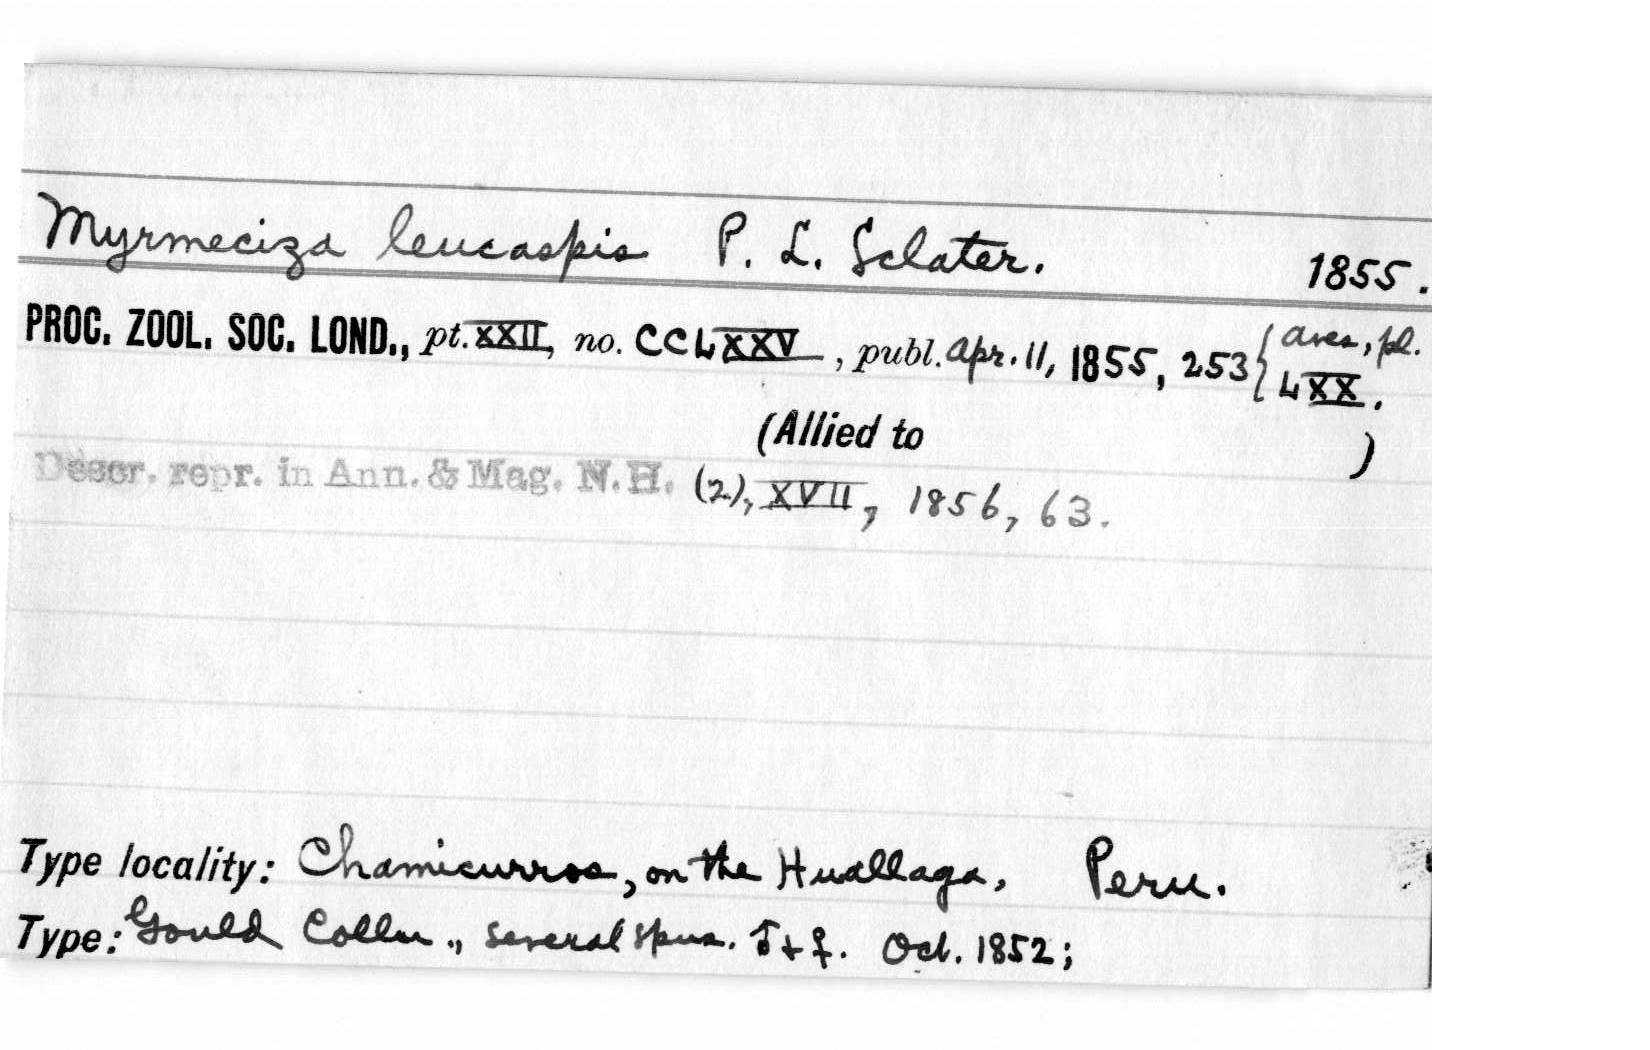 Myrmeciza leucaspis P. L. Sclater. 1855.
PROC. ZOOL. SOC. LOND., pt. XXII, no. CCLXXV, publ. Apr. 11, 1855, 253 { Aves, pl. LXX.
(Allied to )
Descr. repr. in Ann. & Mag. N.H. (2), XVII, 1856, 63.
Type locality: Chamicurros, on the Huallaga, Peru.
Type: Gould Colln., several spns. ♂ + ♀. Oct. 1852;